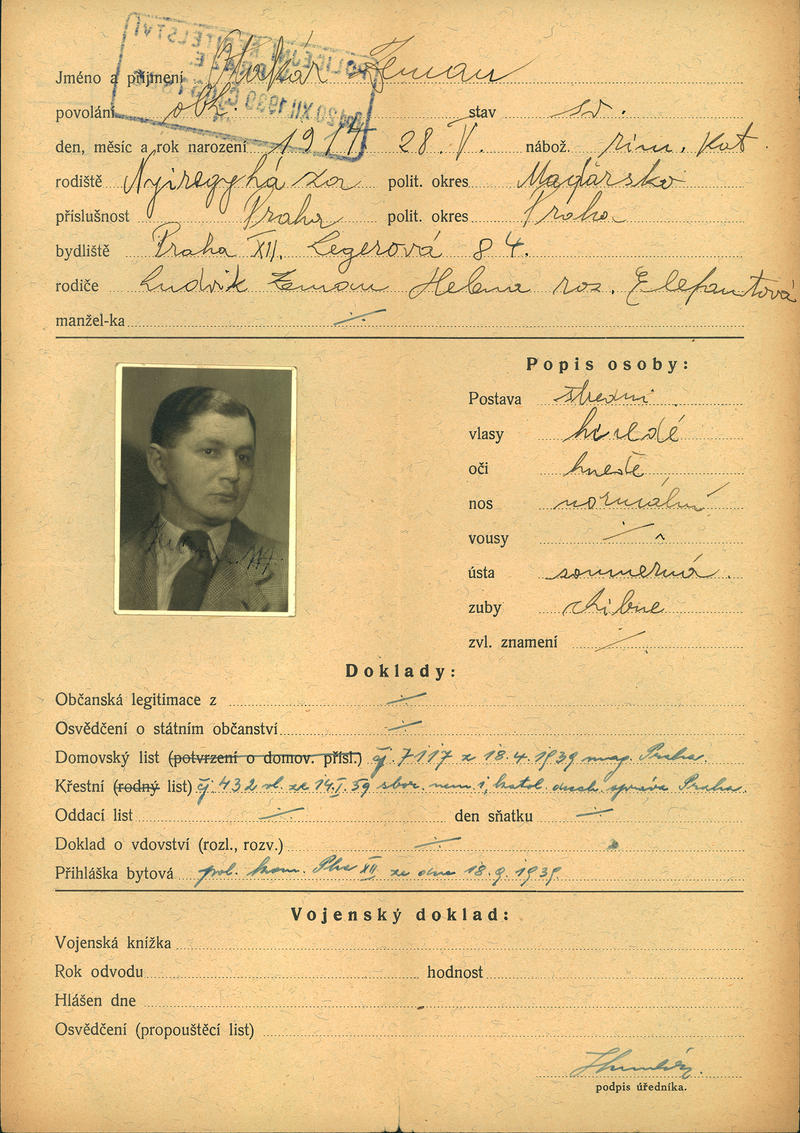 Jméno a příjmení Otakár Zeman
povolání obch. stav sv.
den, měsíc a rok narození 1914 28. V. nábož. řím. kat.
rodiště Nyiregyháza polit. okres Maďarsko
příslušnost Praha polit. okres Praha
bydliště Praha XII. Legerová 84.
rodiče Ludvik Zeman Helena roz. Elefantová
manžel-ka ·/·
Popis osoby:
Postava střední
vlasy hnědé
oči hnědé
nos normální
vousy ·/·
ústa souměrná.
zuby chibne
zvl. znamení ·/·
Doklady:
Občanská legitimace z ·/·
Osvědčení o státním občanství ·/·
Domovský list (potvrzení o domov. přísl.) čj. 7117 z 18.4.1939 mag. Praha.
Křestní (rodný list) čj 432 ze 14.I.39 sbor. nem i, katol. duch. správa Praha.
Oddací list ·/· den sňatku ·/·
Doklad o vdovství (rozl., rozv.) ·/·
Přihláška bytová pol. kom. Pha XII ze dne 18.9.1939.
Vojenský doklad:
Vojenská knížka
Rok odvodu hodnost
Hlášen dne
Osvědčení (propouštěcí list)
podpis úředníka.